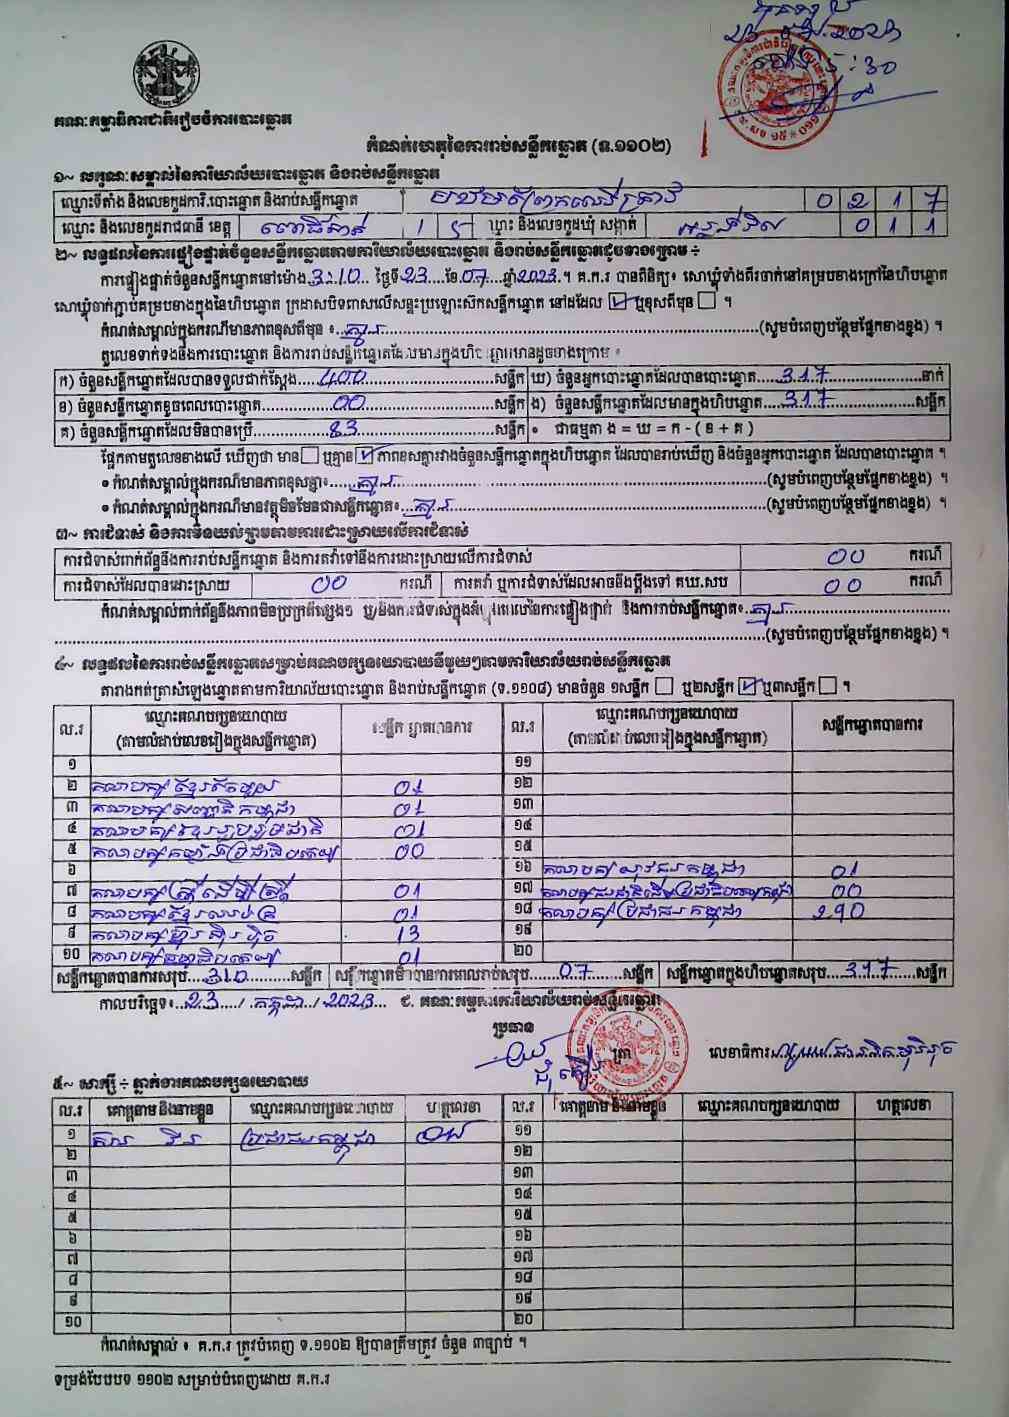 ២៣ ២០២៣
៥:៣០
គណៈកម្មាធិការជាតិរៀបចំការបោះឆ្នោត
កំណត់ហេតុនៃការរាប់សន្លឹកឆ្នោត (ទ.១១០២)
១~ លក្ខណៈសម្គាល់នៃការិយាល័យបោះឆ្នោត និងរាប់សន្លឹកឆ្នោត
ឈ្មោះទីតាំង និងលេខកូដការិ.បោះឆ្នោត និងរាប់សន្លឹកឆ្នោត 0 2 1 7
ឈ្មោះ និងលេខកូដរាជធានី ខេត្ត ពោធិ៍សាត់ 1 5 ឈ្មោះ និងលេខកូដឃុំ សង្កាត់ 0 1 1
២~ លទ្ធផលនៃការផ្ទៀងផ្ទាត់ចំនួនសន្លឹកឆ្នោតតាមការិយាល័យបោះឆ្នោត និងរាប់សន្លឹកឆ្នោតដូចខាងក្រោម ÷
ការផ្ទៀងផ្ទាត់ចំនួនសន្លឹកឆ្នោតនៅម៉ោង 3:10 ថ្ងៃទី 23 ខែ 07 ឆ្នាំ 2023 ។ គ.ក.រ បានពិនិត្យ៖ សោឃ្មុំទាំងពីរចាក់នៅគម្របខាងក្រៅនៃហិបឆ្នោត
សោឃ្មុំចាក់ភ្ជាប់គម្របខាងក្នុងនៃហិបឆ្នោត ក្រដាសបិទពាសលើសន្ទះប្រឡោះស៊កសន្លឹកឆ្នោត នៅដដែល ☑ ឬខុសពីមុន ☐ ។
កំណត់សម្គាល់ក្នុងករណីមានភាពខុសពីមុន ៖ គ្មាន (សូមបំពេញបន្ថែមផ្នែកខាងខ្នង) ។
តួលេខទាក់ទងនឹងការបោះឆ្នោត និងការរាប់សន្លឹកឆ្នោតដែលមានក្នុងហិបឆ្នោតមានដូចខាងក្រោម ៖
ក) ចំនួនសន្លឹកឆ្នោតដែលបានទទួលជាក់ស្តែង 400 សន្លឹក ឃ) ចំនួនអ្នកបោះឆ្នោតដែលបានបោះឆ្នោត 317 នាក់
ខ) ចំនួនសន្លឹកឆ្នោតខូចពេលបោះឆ្នោត 00 សន្លឹក ង) ចំនួនសន្លឹកឆ្នោតដែលមានក្នុងហិបឆ្នោត 317 សន្លឹក
គ) ចំនួនសន្លឹកឆ្នោតដែលមិនបានប្រើ 83 សន្លឹក ៖ ជាធម្មតា ង = ឃ = ក - ( ខ + គ )
ផ្អែកតាមតួលេខខាងលើ ឃើញថា មាន ☐ ឬគ្មាន ☑ ភាពខុសគ្នារវាងចំនួនសន្លឹកឆ្នោតក្នុងហិបឆ្នោត ដែលបានរាប់ឃើញ និងចំនួនអ្នកបោះឆ្នោត ដែលបានបោះឆ្នោត ។
• កំណត់សម្គាល់ក្នុងករណីមានភាពខុសគ្នា៖ គ្មាន (សូមបំពេញបន្ថែមផ្នែកខាងខ្នង) ។
• កំណត់សម្គាល់ក្នុងករណីមានវត្ថុមិនមែនជាសន្លឹកឆ្នោត៖ គ្មាន (សូមបំពេញបន្ថែមផ្នែកខាងខ្នង) ។
៣~ ការជំទាស់ និងការមិនយល់ព្រមតាមការដោះស្រាយលើការជំទាស់
ការជំទាស់ពាក់ព័ន្ធនឹងការរាប់សន្លឹកឆ្នោត និងការតវ៉ាទៅនឹងការដោះស្រាយលើការជំទាស់ 00 ករណី
ការជំទាស់ដែលបានដោះស្រាយ 00 ករណី ការតវ៉ា ឬការជំទាស់ដែលអាចនឹងប្តឹងទៅ គឃ.សប 00 ករណី
កំណត់សម្គាល់ពាក់ព័ន្ធនឹងភាពមិនប្រក្រតីផ្សេងៗ ឬ/និងការជំទាស់ក្នុងអំឡុងពេលនៃការផ្ទៀងផ្ទាត់ និងការរាប់សន្លឹកឆ្នោត៖ គ្មាន
(សូមបំពេញបន្ថែមផ្នែកខាងខ្នង) ។
៤~ លទ្ធផលនៃការរាប់សន្លឹកឆ្នោតសម្រាប់គណបក្សនយោបាយនីមួយៗតាមការិយាល័យរាប់សន្លឹកឆ្នោត
តារាងកត់ត្រាសំឡេងឆ្នោតតាមការិយាល័យបោះឆ្នោត និងរាប់សន្លឹកឆ្នោត (ទ.១១០៨) មានចំនួន ១សន្លឹក ☐ ឬ២សន្លឹក ☑ ឬ៣សន្លឹក ☐ ។
ល.រ ឈ្មោះគណបក្សនយោបាយ (តាមលំដាប់លេខរៀងក្នុងសន្លឹកឆ្នោត) សន្លឹកឆ្នោតបានការ ល.រ ឈ្មោះគណបក្សនយោបាយ (តាមលំដាប់លេខរៀងក្នុងសន្លឹកឆ្នោត) សន្លឹកឆ្នោតបានការ
១ ១១
២ គណបក្សខ្មែរតែមួយ 01 ១២
៣ គណបក្សសញ្ជាតិកម្ពុជា 01 ១៣
៤ គណបក្សខ្មែររួបរួមជាតិ 01 ១៤
៥ គណបក្សកម្លាំងប្រជាធិបតេយ្យ 00 ១៥
៦ ១៦ គណបក្សយុវជនកម្ពុជា 01
៧ គណបក្សស្ត្រីដើម្បីស្ត្រី 01 ១៧ 00
៨ គណបក្សខ្មែរឈប់ក្រ 01 ១៨ គណបក្សប្រជាជនកម្ពុជា 290
៩ គណបក្សហ៊្វុនស៊ិនប៉ិច 13 ១៩
១០ គណបក្សធម្មាធិបតេយ្យ 01 ២០
សន្លឹកឆ្នោតបានការសរុប 310 សន្លឹក សន្លឹកឆ្នោតមិនបានការពេលរាប់សរុប 07 សន្លឹក សន្លឹកឆ្នោតក្នុងហិបឆ្នោតសរុប 317 សន្លឹក
កាលបរិច្ឆេទ៖ 23 / កក្កដា / 2023 ជ. គណៈកម្មការការិយាល័យរាប់សន្លឹកឆ្នោត
ប្រធាន
ត្រា លេខាធិការ
៥~ សាក្សី ÷ ភ្នាក់ងារគណបក្សនយោបាយ
ល.រ គោត្តនាម និងនាមខ្លួន ឈ្មោះគណបក្សនយោបាយ ហត្ថលេខា ល.រ គោត្តនាម និងនាមខ្លួន ឈ្មោះគណបក្សនយោបាយ ហត្ថលេខា
១ ប្រជាជនកម្ពុជា ១១
២ ១២
៣ ១៣
៤ ១៤
៥ ១៥
៦ ១៦
៧ ១៧
៨ ១៨
៩ ១៩
១០ ២០
កំណត់សម្គាល់ ៖ គ.ក.រ ត្រូវបំពេញ ទ.១១០២ ឱ្យបានត្រឹមត្រូវ ចំនួន ៣ច្បាប់ ។
ទម្រង់បែបបទ ១១០២ សម្រាប់បំពេញដោយ គ.ក.រ